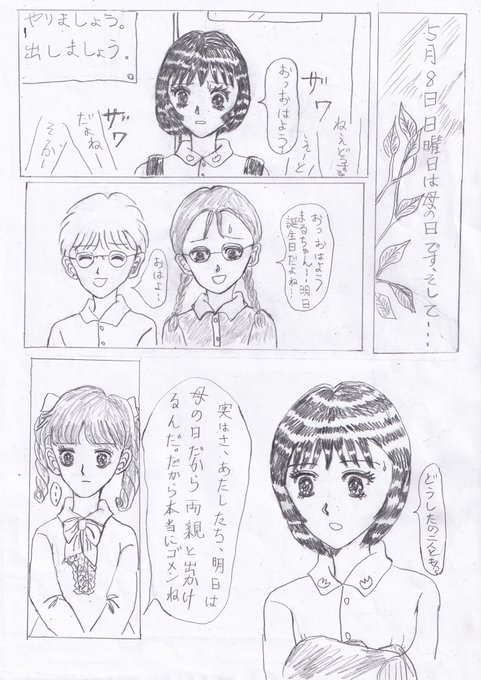 5月8日 日曜日は母の日です、そして・・・・
やりましょう。
出しましょう。
ザワ
おっおはよう!
ザワ
だよね
えーと
おっ おはよう
まるちゃん…明日
誕生日だよね…
おはよ…
どうしたの二人とも。
実はさ、あたしたち、明日は
母の日だから両親と出かけ
るんだ。だから本当にゴメンね
…